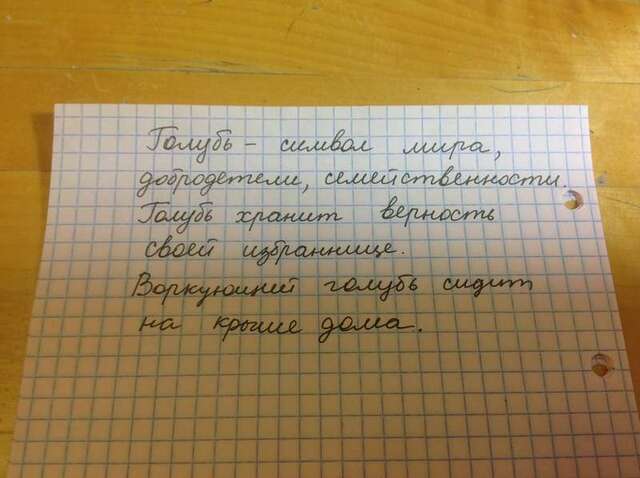 Голубь - символ мира,
добродетели, семейственности.
Голубь хранит верность
своей избраннице.
Воркующий голубь сидит
на крыше дома.